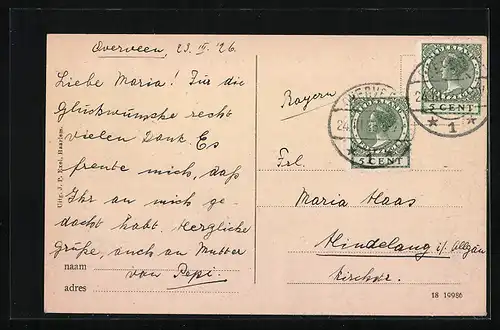 Overveen, 23. IV. 26.
Liebe Maria! Für die
Glückwünsche recht
vielen Dank. Es
freute mich, daß
Ihr an mich ge-
dacht habt. Herzliche
Grüße, auch an Mutter
von Pepi.
naam
adres
Uitg. J. P. Exel, Haarlem.
Bayern
OVERVEEN
24
* 1 *
NEDERLAND
5 CENT
24
* 1 *
NEDERLAND
5 CENT
Frl.
Maria Haas
Hindelang i/. Allgäu
Kirchstr.
18 19986